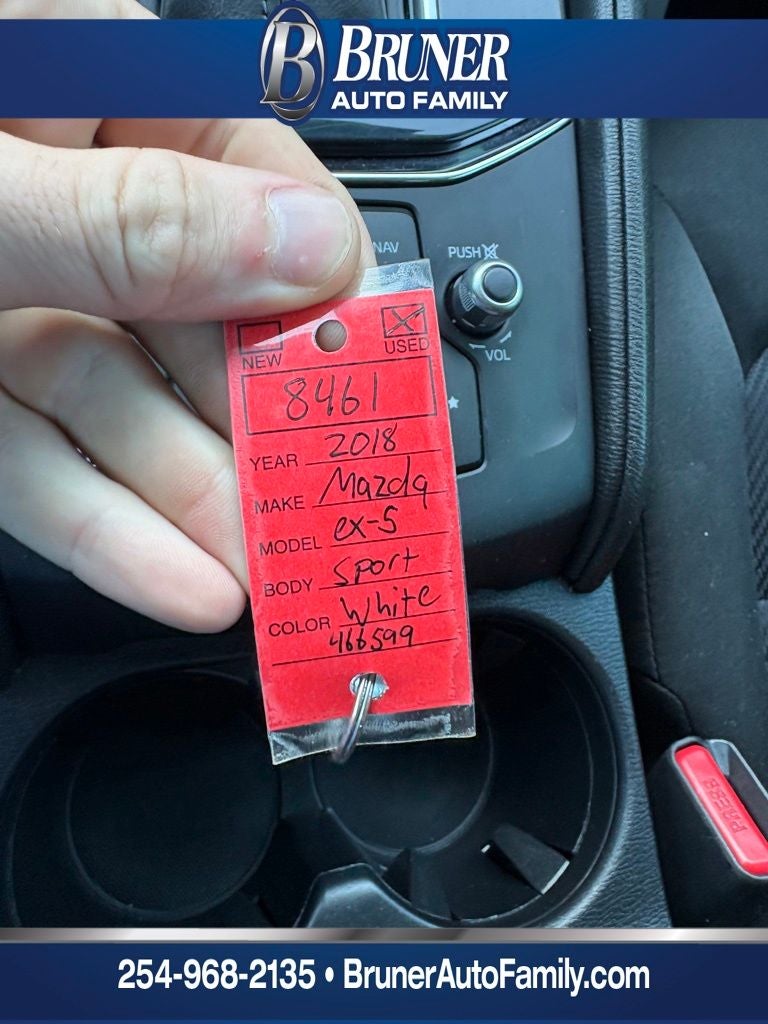 B BRUNER
AUTO FAMILY
NAV
PUSH
VOL
NEW
USED
8461
YEAR 2018
MAKE Mazda
MODEL ex-5
BODY Sport
COLOR White
466599
PRESS
254-968-2135 • BrunerAutoFamily.com